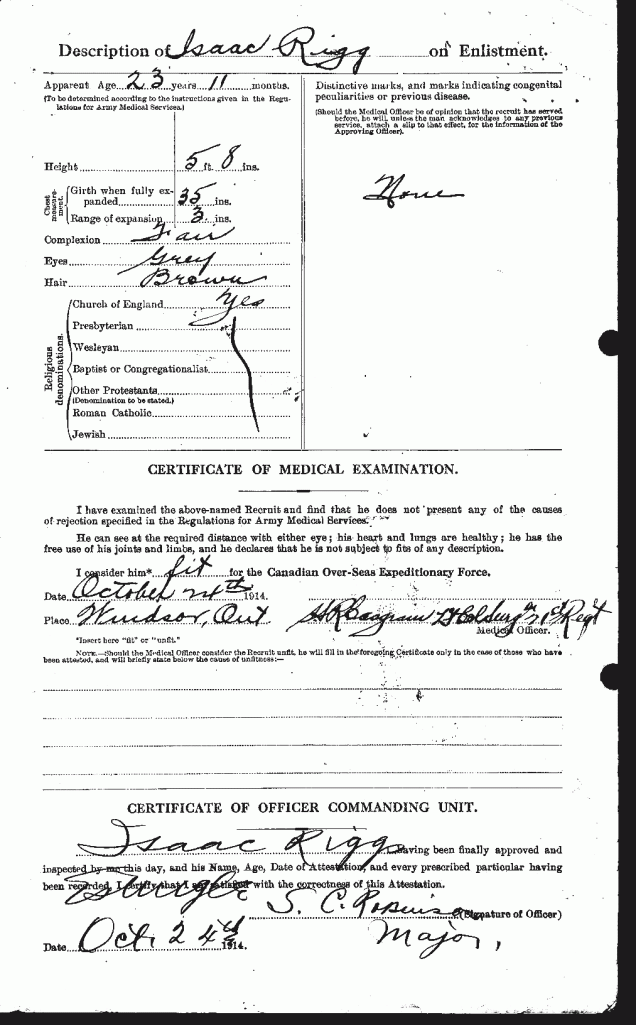 Description of Isaac Rigg on Enlistment.
Apparent Age 23 years 11 months.
(To be determined according to the instructions given in the Regu-
lations for Army Medical Services.)
Height 5 ft. 8 ins.
Chest measure-ment.
Girth when fully ex-
panded 35 ins.
Range of expansion 3 ins.
Complexion Fair
Eyes Grey
Hair Brown
Religious denominations.
Church of England Yes
Presbyterian
Wesleyan
Baptist or Congregationalist
Other Protestants
(Denomination to be stated.)
Roman Catholic
Jewish
Distinctive marks, and marks indicating congenital
peculiarities or previous disease.
(Should the Medical Officer be of opinion that the recruit has served
before, he will, unless the man acknowledges to any previous
service, attach a slip to that effect, for the information of the
Approving Officer).
None
CERTIFICATE OF MEDICAL EXAMINATION.
I have examined the above-named Recruit and find that he does not present any of the causes
of rejection specified in the Regulations for Army Medical Services.
He can see at the required distance with either eye; his heart and lungs are healthy; he has the
free use of his joints and limbs, and he declares that he is not subject to fits of any description.
I consider him* fit for the Canadian Over-Seas Expeditionary Force.
Date October 24th 1914.
Place Windsor, Ont
21st Regt
Medical Officer.
*Insert here "fit" or "unfit."
NOTE.—Should the Medical Officer consider the Recruit unfit, he will fill in the foregoing Certificate only in the case of those who have
been attested, and will briefly state below the cause of unfitness:—
CERTIFICATE OF OFFICER COMMANDING UNIT.
Isaac Rigg having been finally approved and
inspected by me this day, and his Name, Age, Date of Attestation, and every prescribed particular having
been recorded, I certify that I am satisfied with the correctness of this Attestation.
S. C. Robinson (Signature of Officer)
Major,
Date Oct 24th 1914.